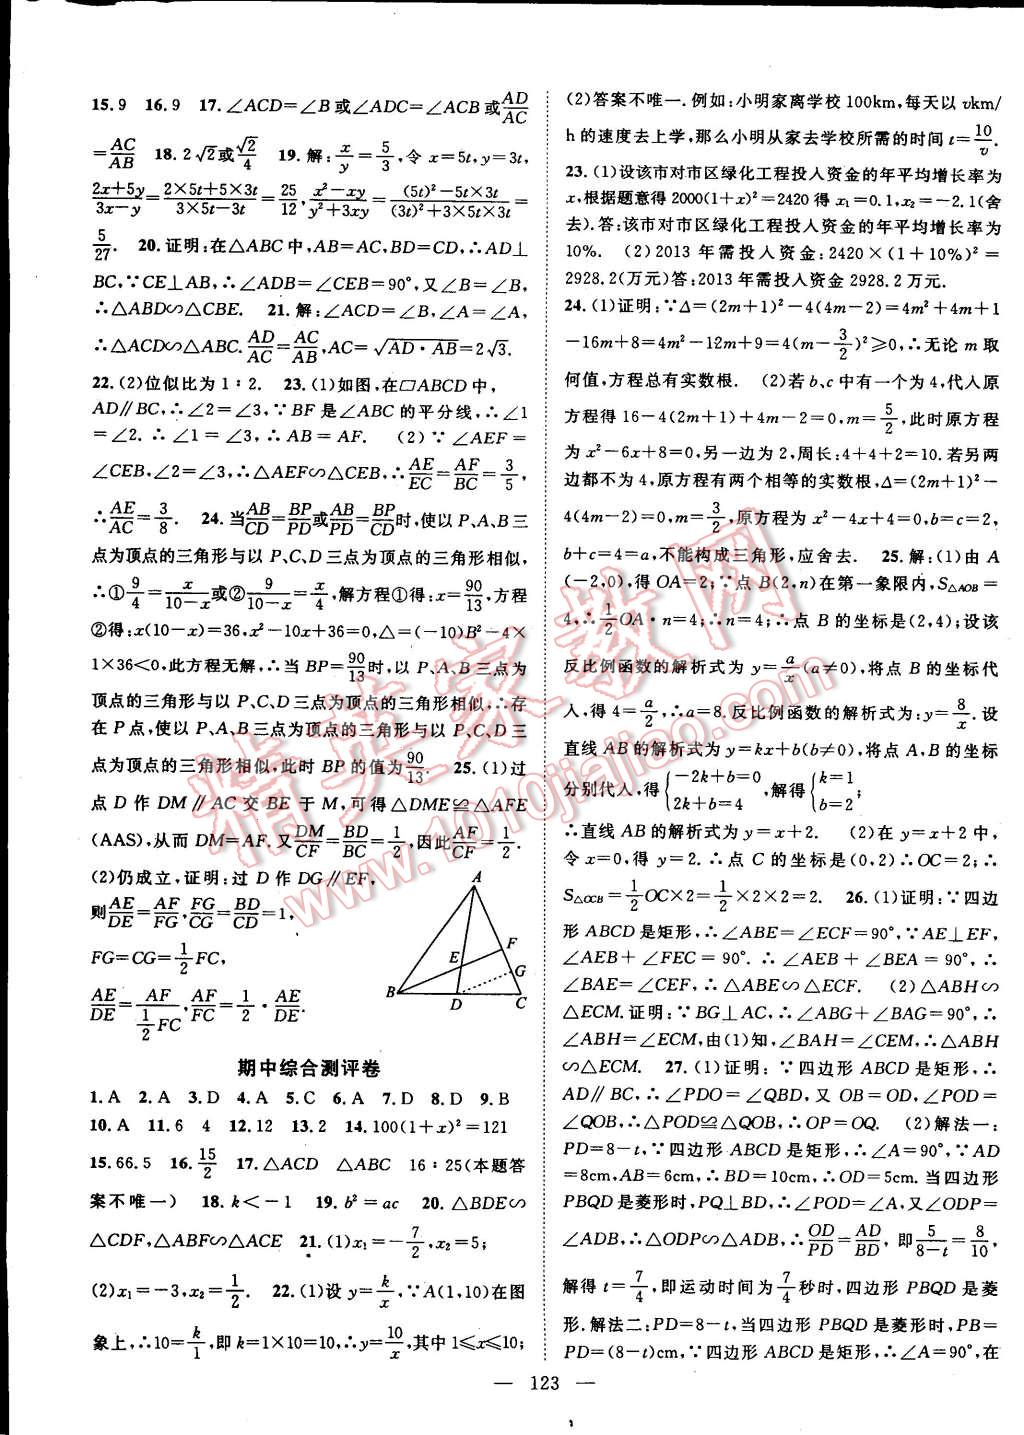 15.9　16.9　17.∠ACD=∠B或∠ADC=∠ACB或AD/AC
=AC/AB　18.2√2或√2/4　19.解:x/y=5/3,令x=5t,y=3t,
(2x+5y)/(3x-y)=(2×5t+5×3t)/(3×5t-3t)=25/12,(x²-xy)/(y²+3xy)=((5t)²-5t×3t)/((3t)²+3×5t×3t)=
5/27.　20.证明:在△ABC中,AB=AC,BD=CD,∴AD⊥
BC,∵CE⊥AB,∴∠ADB=∠CEB=90°,又∠B=∠B,
∴△ABD∽△CBE.　21.解:∠ACD=∠B,∠A=∠A,
∴△ACD∽△ABC.AD/AC=AC/AB,AC=√(AD·AB)=2√3.
22.(2)位似比为1∶2.　23.(1)如图,在▱ABCD中,
AD∥BC,∴∠2=∠3,∵BF是∠ABC的平分线,∴∠1
=∠2.∴∠1=∠3,∴AB=AF.　(2)∵∠AEF=
∠CEB,∠2=∠3,∴△AEF∽△CEB,∴AE/EC=AF/BC=3/5,
∴AE/AC=3/8.　24.当AB/CD=BP/PD或AB/PD=BP/CD时,使以P、A、B三
点为顶点的三角形与以P、C、D三点为顶点的三角形相似,
∴①9/4=x/(10-x)或②9/(10-x)=x/4,解方程①得:x=90/13,方程
②得:x(10-x)=36,x²-10x+36=0,△=(-10)B²-4×
1×36<0,此方程无解,∴当BP=90/13时,以P、A、B三点为
顶点的三角形与以P、C、D三点为顶点的三角形相似,∴存
在P点,使以P、A、B三点为顶点的三角形与以P、C、D三
点为顶点的三角形相似,此时BP的值为90/13.　25.(1)过
点D作DM∥AC交BE于M,可得△DME≌△AFE
(AAS),从而DM=AF.又DM/CF=BD/BC=1/2,因此AF/CF=1/2.
(2)仍成立,证明:过D作DG∥EF,
则AE/DE=AF/FG,FG/CG=BD/CD=1,
FG=CG=1/2FC,
AE/DE=AF/(1/2FC),AF/FC=1/2·AE/DE.
A
F
E
G
B
D
C
期中综合测评卷
1.A　2.A　3.D　4.A　5.C　6.A　7.D　8.D　9.B
10.A　11.6　4　12.12　13.2　14.100(1+x)²=121
15.66.5　16.15/2　17.△ACD　△ABC　16∶25(本题答
案不唯一)　18.k<-1　19.b²=ac　20.△BDE∽
△CDF,△ABF∽△ACE　21.(1)x₁=-7/2,x₂=5;
(2)x₁=-3,x₂=1/2.　22.(1)设y=k/x,∵A(1,10)在图
象上,∴10=k/1,即k=1×10=10,∴y=10/x,其中1≤x≤10;
(2)答案不唯一.例如:小明家离学校100km,每天以vkm/
h的速度去上学,那么小明从家去学校所需的时间t=10/v.
23.(1)设该市对市区绿化工程投入资金的年平均增长率为
x,根据题意得2000(1+x)²=2420得x₁=0.1,x₂=-2.1(舍
去).答:该市对市区绿化工程投入资金的年平均增长率为
10%.　(2)2013年需投入资金:2420×(1+10%)²=
2928.2(万元)答:2013年需投入资金2928.2万元.
24.(1)证明:∵Δ=(2m+1)²-4(4m-2)=4m²+4m+1
-16m+8=4m²-12m+9=4(m-3/2)²≥0,∴无论m取
何值,方程总有实数根.　(2)若b、c中有一个为4,代入原
方程得16-4(2m+1)+4m-2=0,m=5/2,此时原方程
为x²-6x+8=0,另一边为2,周长:4+4+2=10.若另两
边都不为4,原方程有两个相等的实数根,Δ=(2m+1)²-
4(4m-2)=0,m=3/2,原方程为x²-4x+4=0,b=c=2,
b+c=4=a,不能构成三角形,应舍去.　25.解:(1)由A
(-2,0),得OA=2;∵点B(2,n)在第一象限内,S△AOB=
4,∴1/2OA·n=4;∴n=4;∴点B的坐标是(2,4);设该
反比例函数的解析式为y=a/x(a≠0),将点B的坐标代
入,得4=a/2,∴a=8.反比例函数的解析式为:y=8/x.设
直线AB的解析式为y=kx+b(b≠0),将点A,B的坐标
分别代入,得{-2k+b=0 2k+b=4,解得{k=1 b=2;
∴直线AB的解析式为y=x+2.　(2)在y=x+2中,
令x=0,得y=2.∴点C的坐标是(0,2)∴OC=2;∴
S△OCB=1/2OC×2=1/2×2×2=2.　26.(1)证明:∵四边
形ABCD是矩形,∴∠ABE=∠ECF=90°,∵AE⊥EF,
∠AEB+∠FEC=90°,∴∠AEB+∠BEA=90°,∴
∠BAE=∠CEF,∴△ABE∽△ECF.　(2)△ABH∽
△ECM.证明:∵BG⊥AC,∴∠ABG+∠BAG=90°,∴
∠ABH=∠ECM,由(1)知,∠BAH=∠CEM,∴△ABH
∽△ECM.　27.(1)证明:∵四边形ABCD是矩形,∴
AD∥BC,∴∠PDO=∠QBD,又OB=OD,∠POD=
∠QOB,∴△POD≌△QOB,∴OP=OQ.　(2)解法一:
PD=8-t,∵四边形ABCD是矩形,∴∠A=90°,∵AD
=8cm,AB=6cm,∴BD=10cm,∴OD=5cm.当四边形
PBQD是菱形时,PQ⊥BD,∴∠POD=∠A,又∠ODP=
∠ADB,∴△ODP∽△ADB,∴OD/PD=AD/BD,即5/(8-t)=8/10,
解得t=7/4,即运动时间为7/4秒时,四边形PBQD是菱
形.解法二:PD=8-t,当四边形PBQD是菱形时,PB=
PD=(8-t)cm,∵四边形ABCD是矩形,∴∠A=90°,在
— 123 —
精英家教网
www.1010jiajiao.com